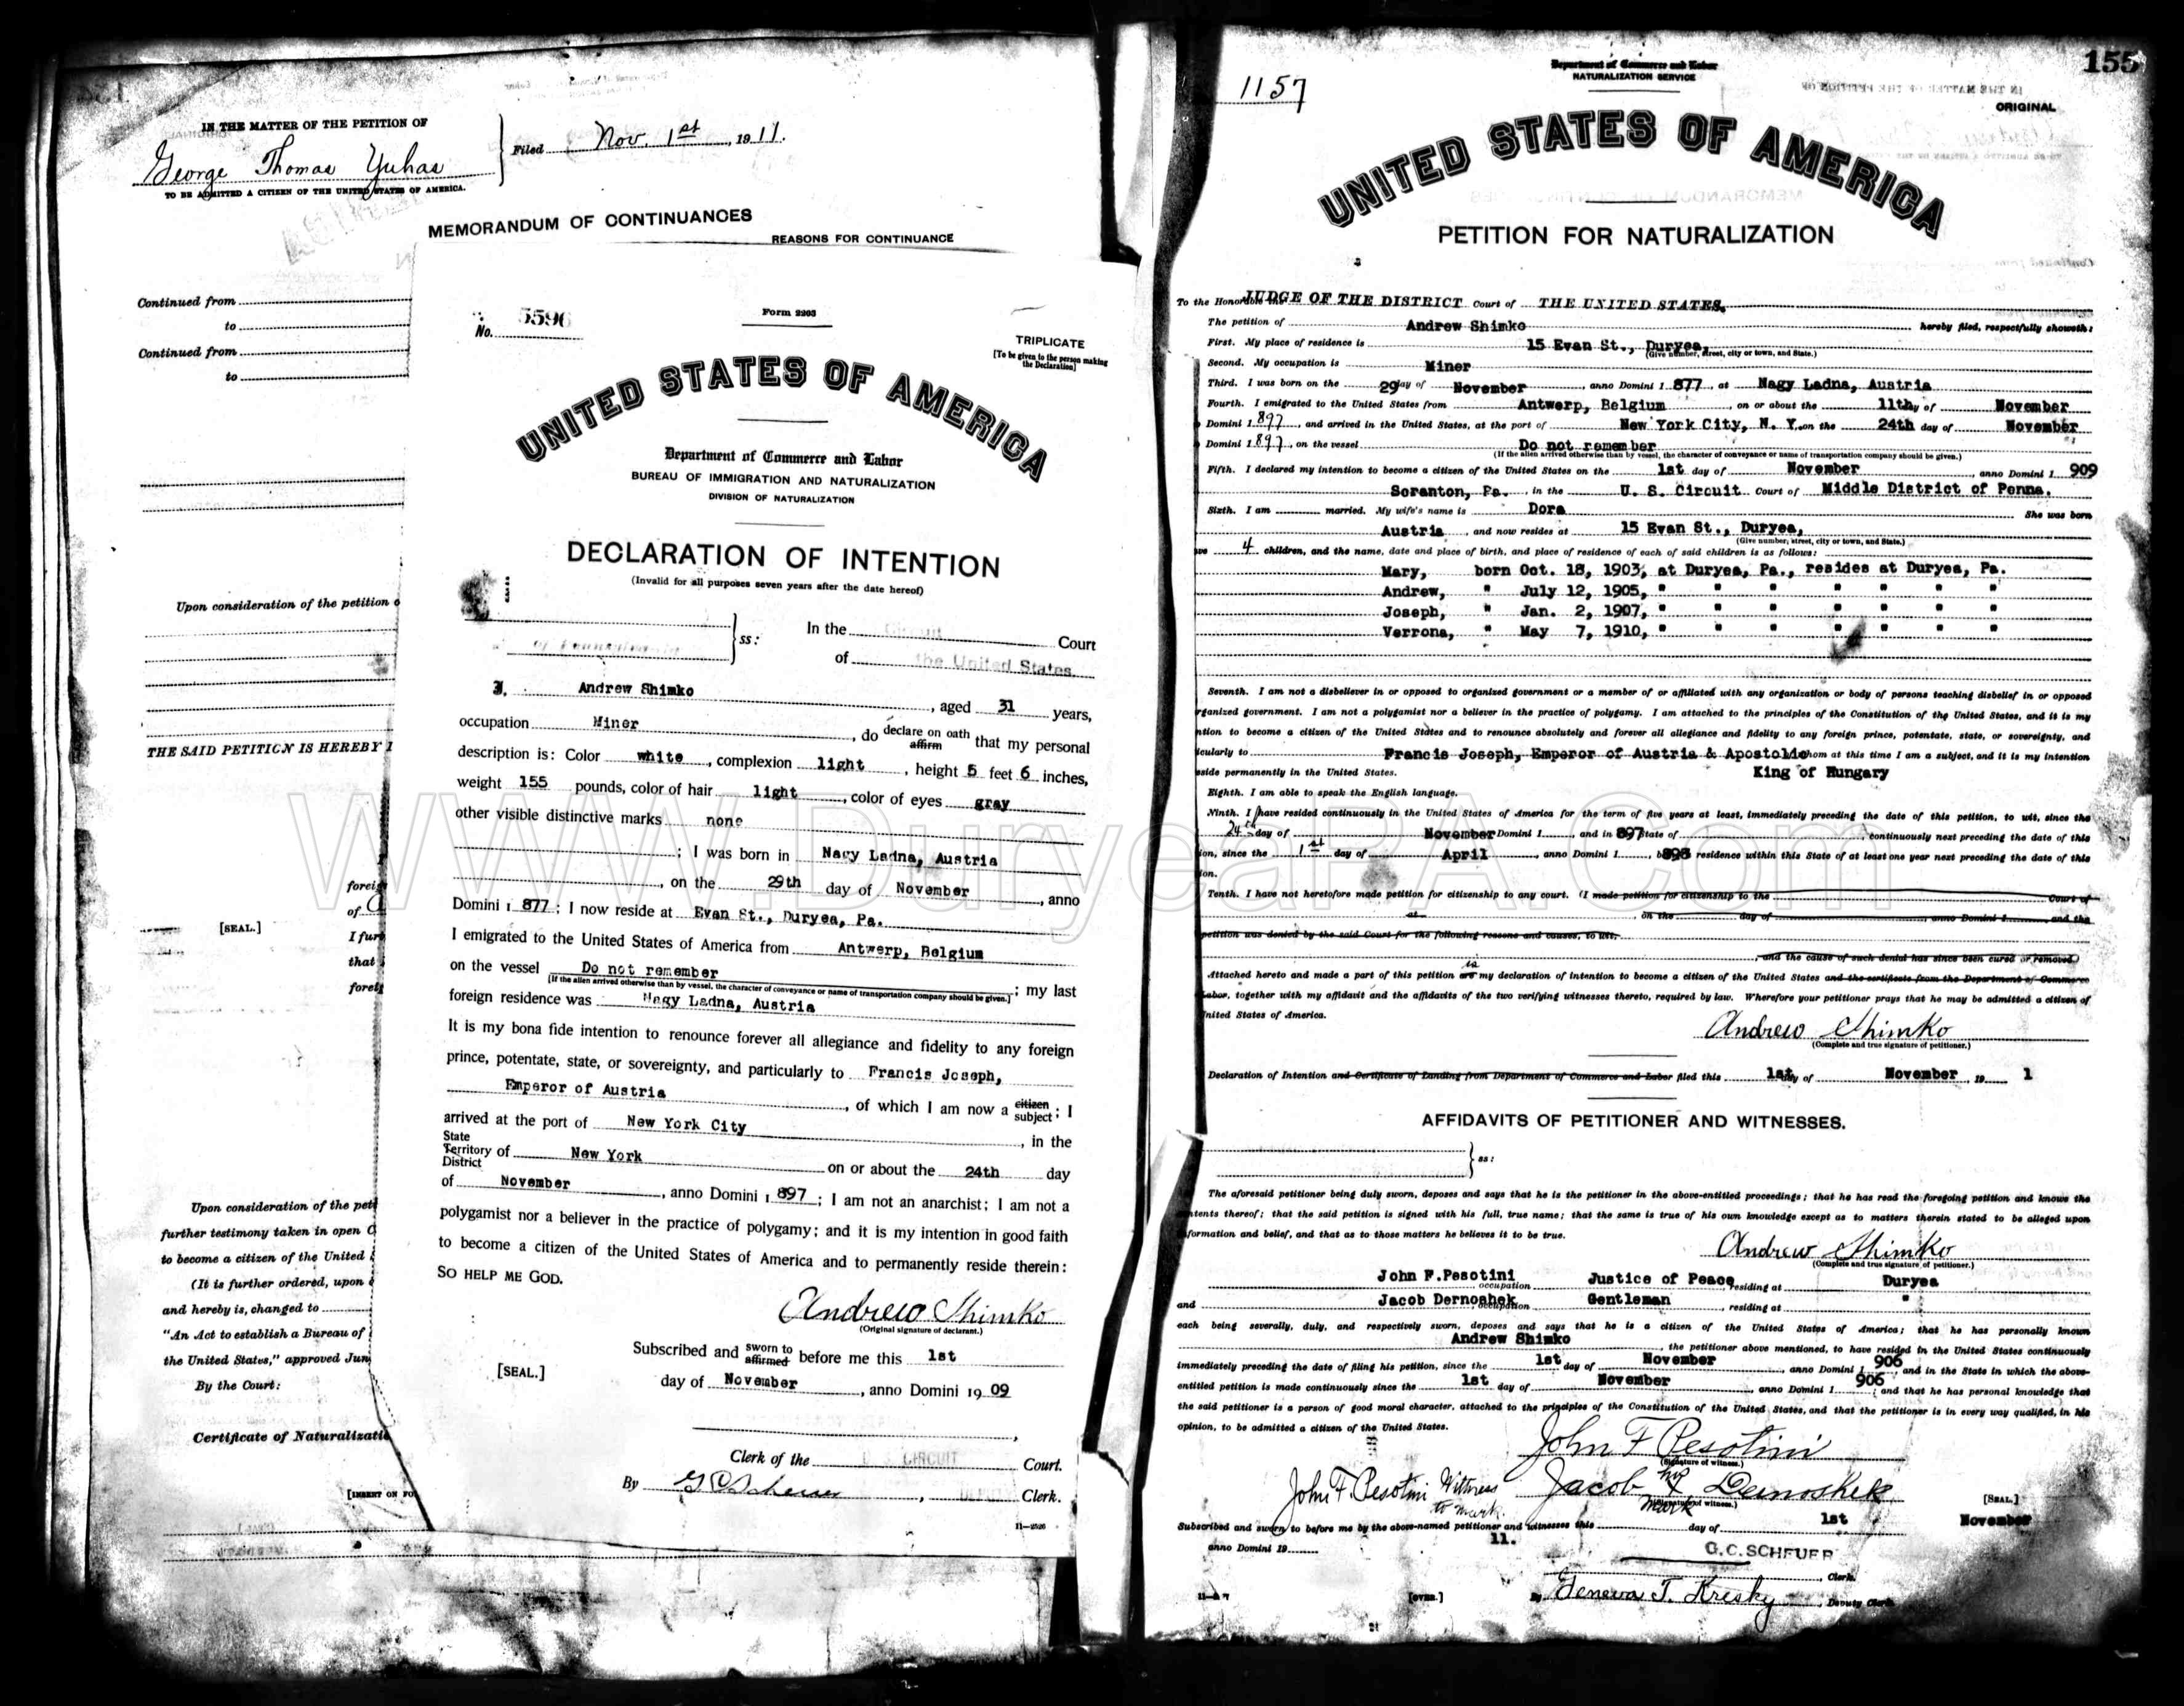 IN THE MATTER OF THE PETITION OF
George Thomas Yuhas
TO BE ADMITTED A CITIZEN OF THE UNITED STATES OF AMERICA.
Filed Nov. 1st, 1911.
MEMORANDUM OF CONTINUANCES
REASONS FOR CONTINUANCE
Continued from
to
Continued from
to
Upon consideration of the petition o
THE SAID PETITION IS HEREBY
foreig
of
[SEAL.]
I fur
that
foreig
Upon consideration of the peti
further testimony taken in open C
to become a citizen of the United
(It is further ordered, upon
and hereby is, changed to
"An Act to establish a Bureau of
the United States," approved Jun
By the Court:
Certificate of Naturalizati
[INSERT ON FO
No. 5596
Form 2203
TRIPLICATE
[To be given to the person making
the Declaration]
UNITED STATES OF AMERICA
Department of Commerce and Labor
BUREAU OF IMMIGRATION AND NATURALIZATION
DIVISION OF NATURALIZATION
DECLARATION OF INTENTION
(Invalid for all purposes seven years after the date hereof)
In the Circuit Court
of Pennsylvania ss:
of the United States
I, Andrew Shimko, aged 31 years,
occupation Miner, do declare on oath affirm that my personal
description is: Color white, complexion light, height 5 feet 6 inches,
weight 155 pounds, color of hair light, color of eyes gray
other visible distinctive marks none
; I was born in Nagy Ladna, Austria
, on the 29th day of November, anno
Domini 1 877; I now reside at Evan St., Duryea, Pa.
I emigrated to the United States of America from Antwerp, Belgium
on the vessel Do not remember; my last
(If the alien arrived otherwise than by vessel, the character of conveyance or name of transportation company should be given.)
foreign residence was Nagy Ladna, Austria
It is my bona fide intention to renounce forever all allegiance and fidelity to any foreign
prince, potentate, state, or sovereignty, and particularly to Francis Joseph,
Emperor of Austria, of which I am now a citizen subject; I
arrived at the port of New York City, in the
State Territory District of New York on or about the 24th day
of November, anno Domini 1 897; I am not an anarchist; I am not a
polygamist nor a believer in the practice of polygamy; and it is my intention in good faith
to become a citizen of the United States of America and to permanently reside therein:
SO HELP ME GOD.
Andrew Shimko
(Original signature of declarant.)
Subscribed and sworn to affirmed before me this 1st
[SEAL.]
day of November, anno Domini 19 09
Clerk of the U. S. CIRCUIT Court.
By G C Scheuer, Clerk.
11—2526
155
1157
Department of Commerce and Labor
NATURALIZATION SERVICE
ORIGINAL
UNITED STATES OF AMERICA
PETITION FOR NATURALIZATION
To the Honorable the JUDGE OF THE DISTRICT Court of THE UNITED STATES.
The petition of Andrew Shimko hereby filed, respectfully showeth:
First. My place of residence is 15 Evan St., Duryea,
(Give number, street, city or town, and State.)
Second. My occupation is Miner
Third. I was born on the 29 day of November, anno Domini 1 877, at Nagy Ladna, Austria
Fourth. I emigrated to the United States from Antwerp, Belgium, on or about the 11th day of November
Domini 1 897, and arrived in the United States, at the port of New York City, N. Y. on the 24th day of November
Domini 1 897, on the vessel Do not remember
(If the alien arrived otherwise than by vessel, the character of conveyance or name of transportation company should be given.)
Fifth. I declared my intention to become a citizen of the United States on the 1st day of November, anno Domini 1 909
Scranton, Pa. in the U. S. Circuit Court of Middle District of Penna.
Sixth. I am married. My wife's name is Dora She was born
Austria, and now resides at 15 Evan St., Duryea,
(Give number, street, city or town, and State.)
4 children, and the name, date and place of birth, and place of residence of each of said children is as follows:
Mary, born Oct. 18, 1903, at Duryea, Pa., resides at Duryea, Pa.
Andrew, " July 12, 1905, " " " " " " "
Joseph, " Jan. 2, 1907, " " " " " " "
Verrona, " May 7, 1910, " " " " " " "
Seventh. I am not a disbeliever in or opposed to organized government or a member of or affiliated with any organization or body of persons teaching disbelief in or opposed
rganized government. I am not a polygamist nor a believer in the practice of polygamy. I am attached to the principles of the Constitution of the United States, and it is my
ntion to become a citizen of the United States and to renounce absolutely and forever all allegiance and fidelity to any foreign prince, potentate, state, or sovereignty, and
icularly to Francis Joseph, Emperor of Austria & Apostolic hom at this time I am a subject, and it is my intention
eside permanently in the United States. King of Hungary
Eighth. I am able to speak the English language.
Ninth. I have resided continuously in the United States of America for the term of five years at least, immediately preceding the date of this petition, to wit, since the
24th day of November Domini 1, and in 897 State of, continuously next preceding the date of this
ion, since the 1st day of April, anno Domini 1, b 898 residence within this State of at least one year next preceding the date of this
ion.
Tenth. I have not heretofore made petition for citizenship to any court. (I made petition for citizenship to the Court of
at, on the day of, anno Domini 1, and the
petition was denied by the said Court for the following reasons and causes, to wit,
, and the cause of such denial has since been cured or removed)
Attached hereto and made a part of this petition are is my declaration of intention to become a citizen of the United States and the certificate from the Department of Commerce
Labor, together with my affidavit and the affidavits of the two verifying witnesses thereto, required by law. Wherefore your petitioner prays that he may be admitted a citizen of
nited States of America.
Andrew Shimko
(Complete and true signature of petitioner.)
Declaration of Intention and Certificate of Landing from Department of Commerce and Labor filed this 1st day of November, 19 1
AFFIDAVITS OF PETITIONER AND WITNESSES.
ss:
The aforesaid petitioner being duly sworn, deposes and says that he is the petitioner in the above-entitled proceedings; that he has read the foregoing petition and knows the
ntents thereof; that the said petition is signed with his full, true name; that the same is true of his own knowledge except as to matters therein stated to be alleged upon
formation and belief, and that as to those matters he believes it to be true.
Andrew Shimko
(Complete and true signature of petitioner.)
John F. Pesotini occupation Justice of Peace, residing at Duryea
and Jacob Dernoshek, occupation Gentleman, residing at "
each being severally, duly, and respectively sworn, deposes and says that he is a citizen of the United States of America; that he has personally known
Andrew Shimko, the petitioner above mentioned, to have resided in the United States continuously
immediately preceding the date of filing his petition, since the 1st day of November, anno Domini 1 906, and in the State in which the above-
entitled petition is made continuously since the 1st day of November, anno Domini 1 906; and that he has personal knowledge that
the said petitioner is a person of good moral character, attached to the principles of the Constitution of the United States, and that the petitioner is in every way qualified, in his
opinion, to be admitted a citizen of the United States.
John F Pesotini
(Signature of witness.)
John F Pesotini Witness to mark.
Jacob his X mark Dernoshek
(Signature of witness.)
[SEAL.]
Subscribed and sworn to before me by the above-named petitioner and witnesses this 1st day of November
anno Domini 19 11.
G. C. SCHEUER
, Clerk.
[OVER.]
By Geneva T. Kresky, Deputy Clerk
www.DuryeaPA.Com